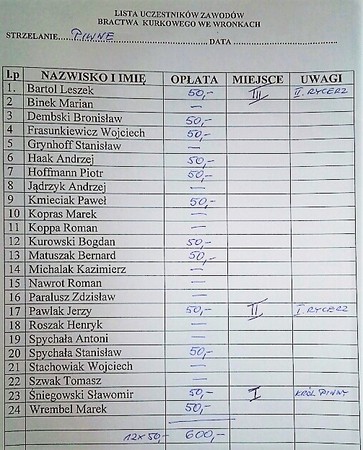 LISTA UCZESTNIKÓW ZAWODÓW
BRACTWA KURKOWEGO WE WRONKACH
STRZELANIE.. PIWNE ..................DATA ..............................
Lp NAZWISKO I IMIĘ OPŁATA MIEJSCE UWAGI
1. Bartol Leszek 50,- III II. RYCERZ
2 Binek Marian —
3 Dembski Bronisław 50,-
4 Frasunkiewicz Wojciech 50,-
5 Grynhoff Stanisław —
6 Haak Andrzej 50,-
7 Hoffmann Piotr 50,-
8 Jądrzyk Andrzej —
9 Kmieciak Paweł 50,-
10 Kopras Marek —
11 Koppa Roman —
12 Kurowski Bogdan 50,-
13 Matuszak Bernard 50,-
14 Michalak Kazimierz —
15 Nawrot Roman —
16 Paralusz Zdzisław —
17 Pawlak Jerzy 50,- II I RYCERZ
18 Roszak Henryk —
19 Spychała Antoni —
20 Spychała Stanisław 50,-
21 Stachowiak Wojciech —
22 Szwak Tomasz —
23 Śniegowski Sławomir 50,- I KRÓL PIWNY
24 Wrembel Marek 50,-
12 x 50,- 600,-